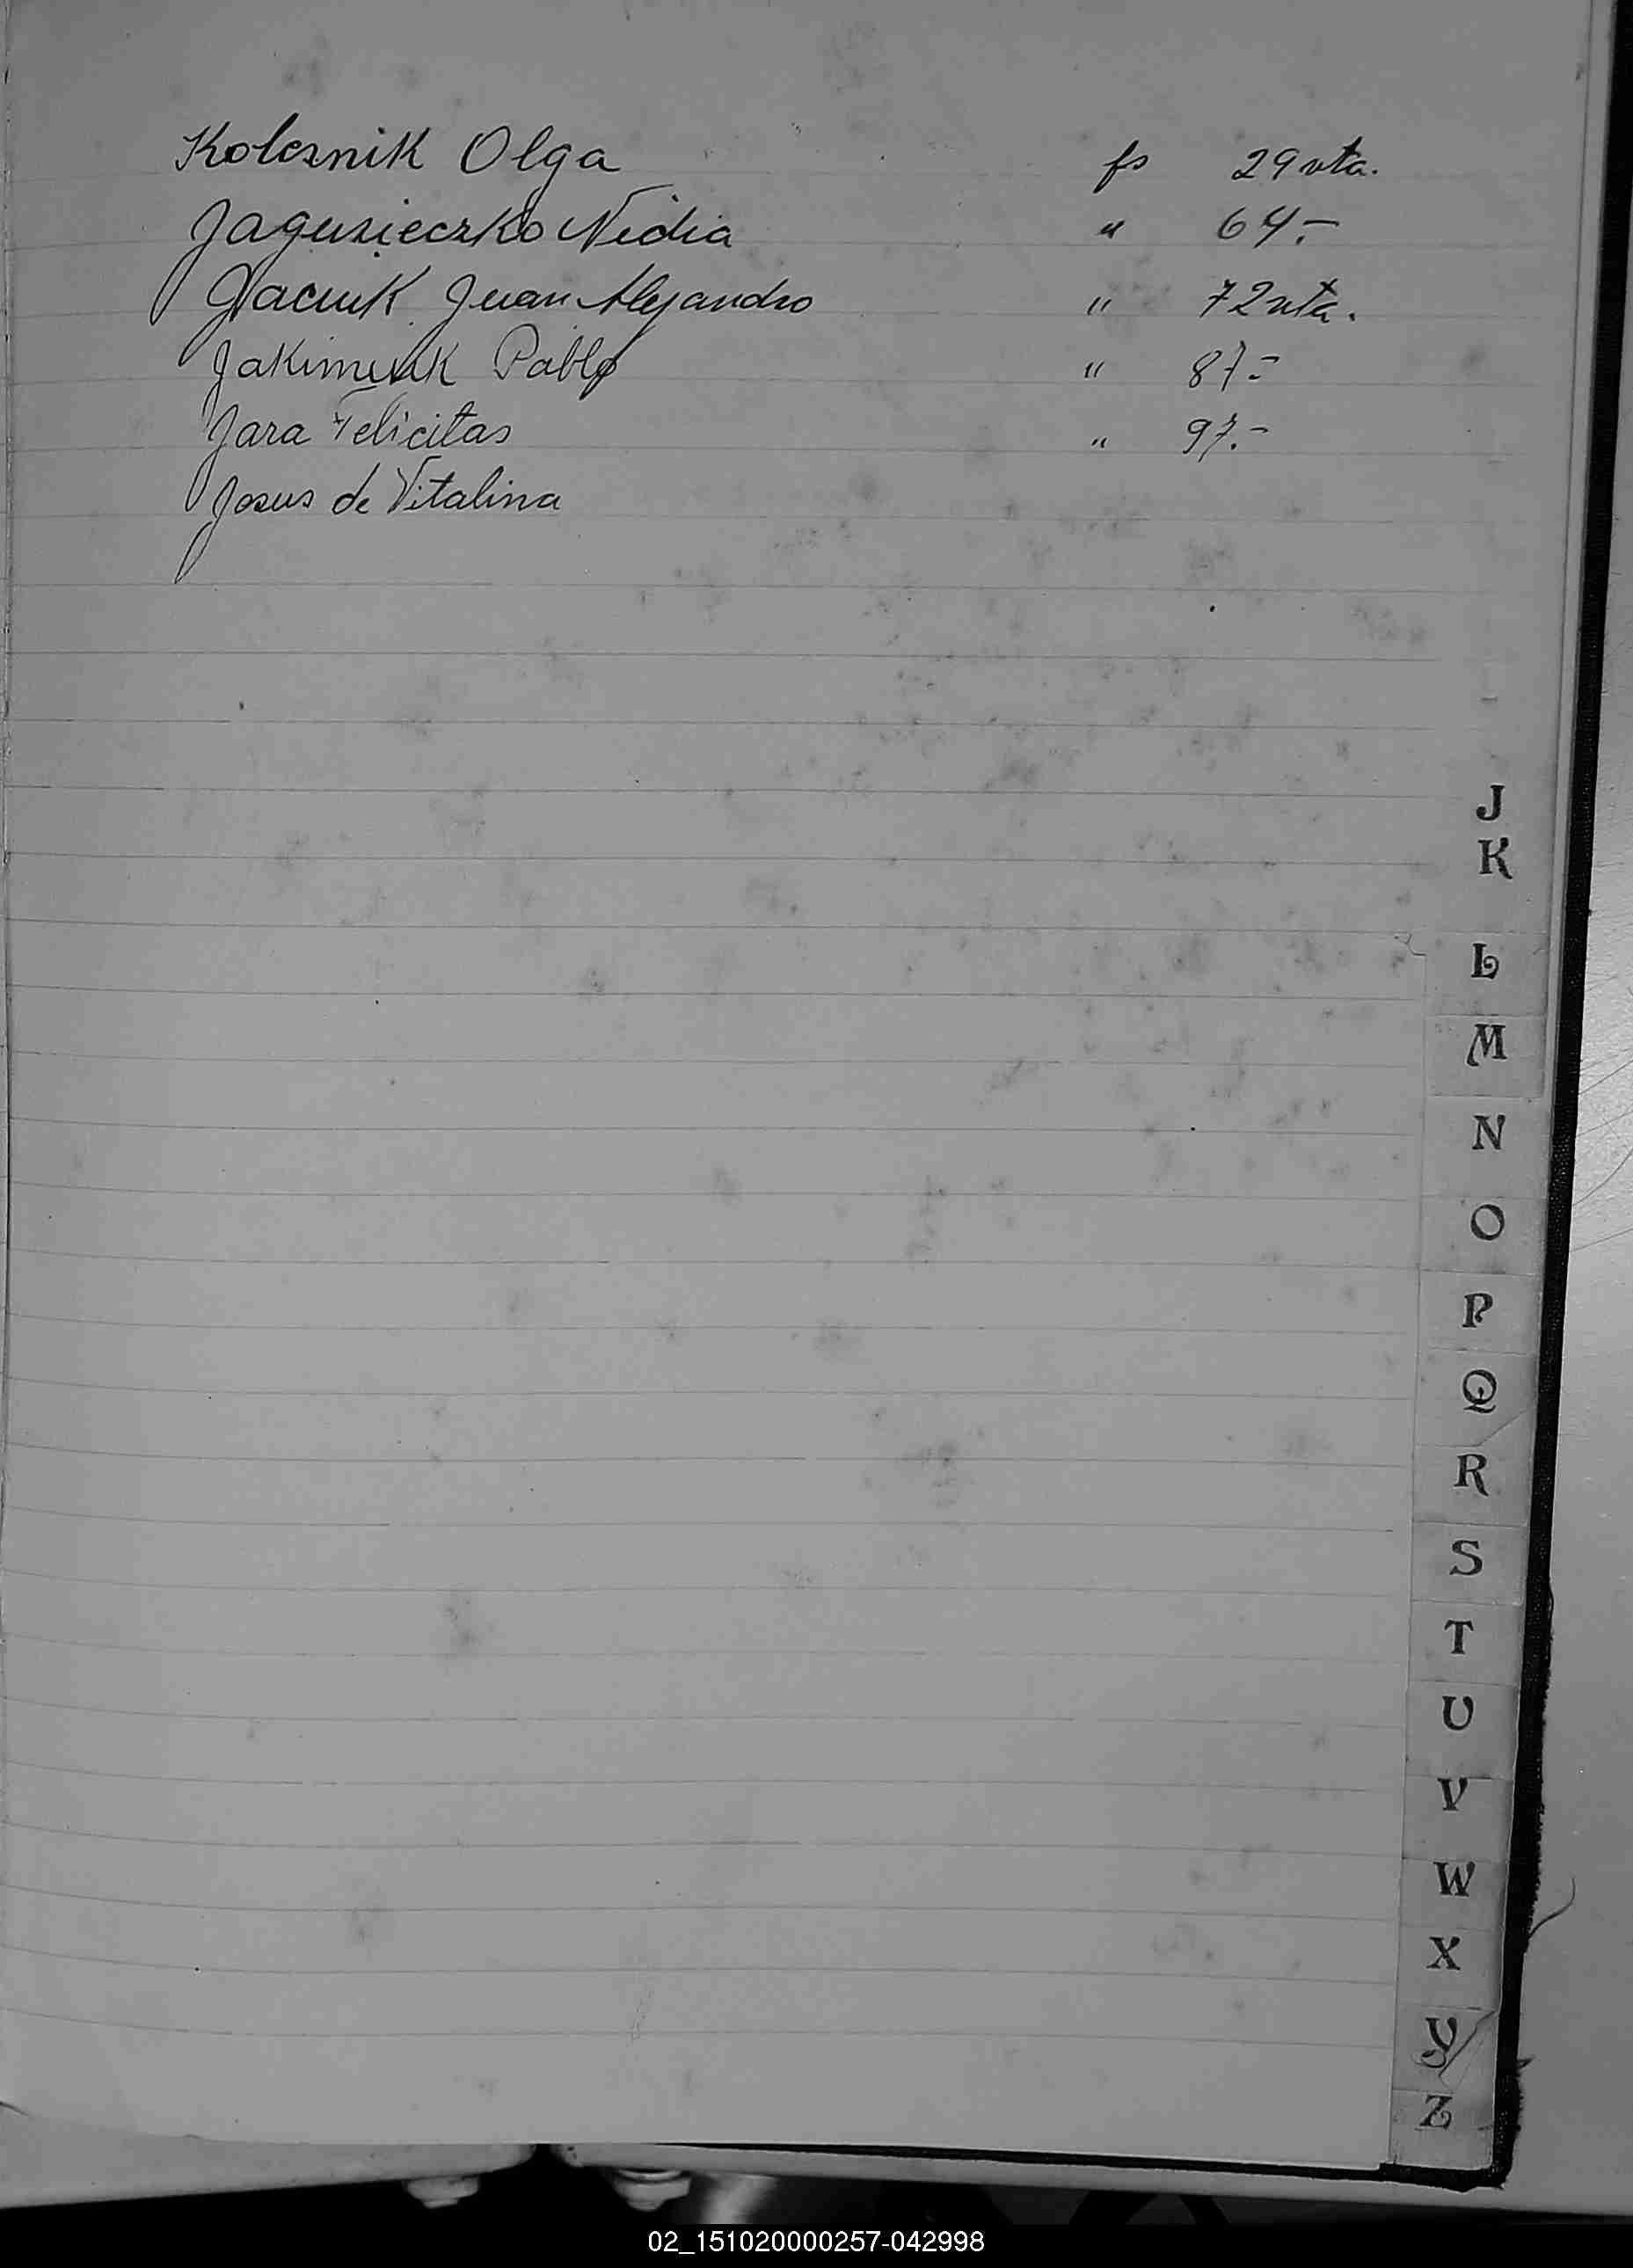 Kolesnik Olga fs 29 vta.
Jagusieczko Nidia " 64.-
Jacuik Juan Alejandro " 72 vta.
Jakimiuk Pablo " 87.-
Jara Felicitas " 97.-
Josus de Vitalina
J
K
L
M
N
O
P
Q
R
S
T
U
V
W
X
Y
Z
02_151020000257-042998